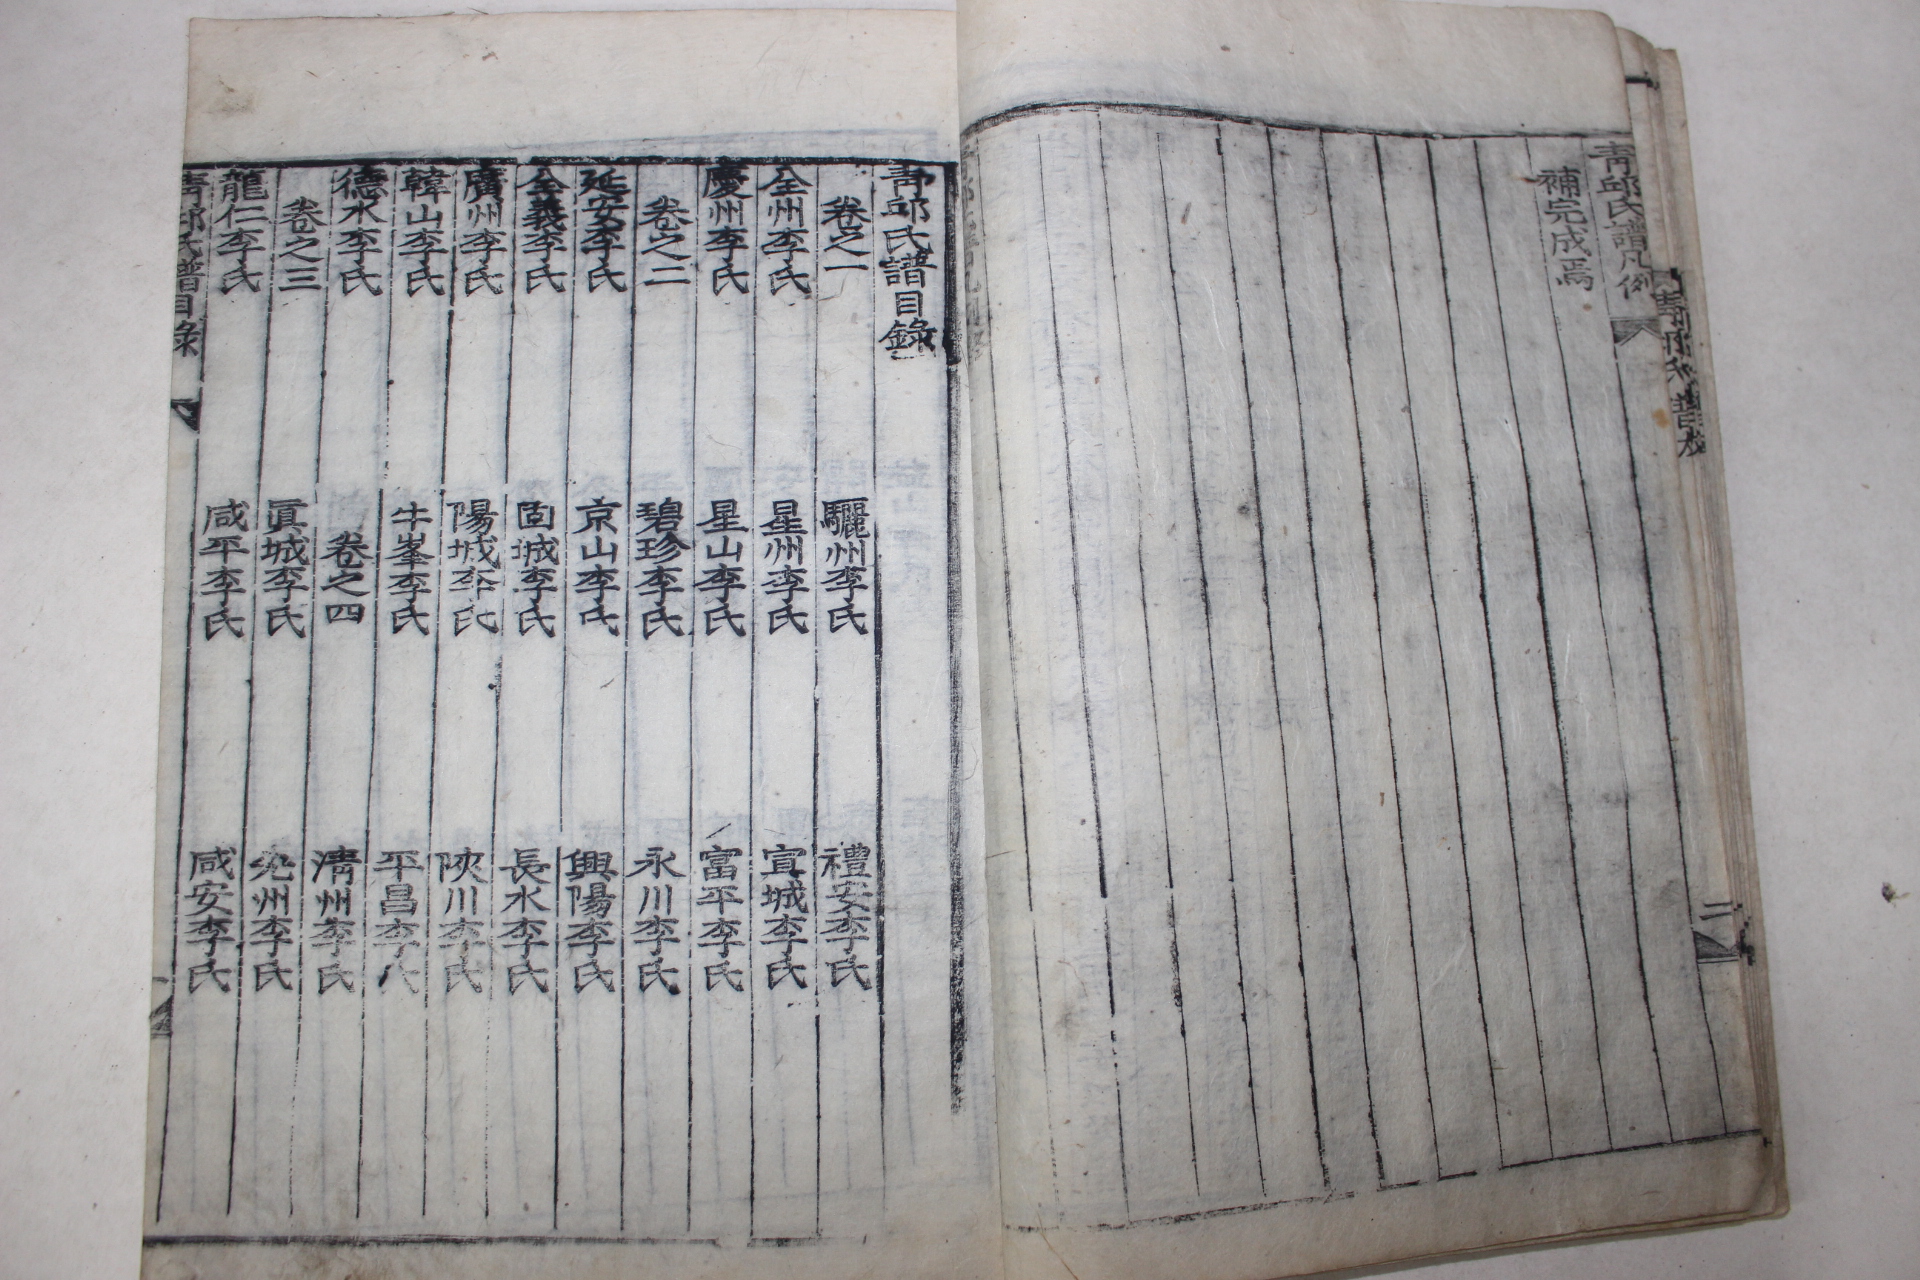 青邱氏譜凡例
二
補完成焉
青邱氏譜目錄
卷之一
驪州李氏
禮安李氏
全州李氏
星州李氏
宣城李氏
慶州李氏
星山李氏
富平李氏
卷之二
碧珍李氏
永川李氏
延安李氏
京山李氏
興陽李氏
全義李氏
固城李氏
長水李氏
廣州李氏
陽城李氏
陜川李氏
韓山李氏
牛峯李氏
平昌李氏
德水李氏
卷之四
淸州李氏
卷之三
眞城李氏
兊州李氏
龍仁李氏
咸平李氏
咸安李氏
青邱氏譜目錄